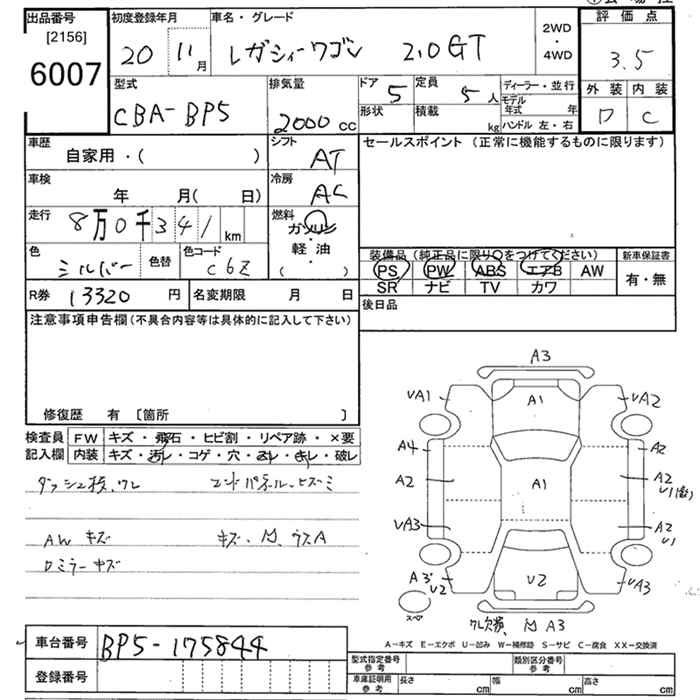 出品番号 初度登録年月 車名・グレード 評価点
[2156]
6007
20 11月 レガシィーワゴン 2.0GT 2WD・4WD 3.5
型式 排気量 ドア 5 定員 5人 ディーラー・並行 外装 内装
CBA-BP5 2000cc 形状 積載 kg モデル年式 年 D C
ハンドル 左・右
車歴 シフト セールスポイント(正常に機能するものに限ります)
自家用・( ) AT
車検 冷房
年 月( 日) AC
走行 燃料
8万0千341km ガソリン・軽油
( )
色 色替 色コード 装備品(純正品に限り○をつけてください) 新車保証書
シルバー C6Z PS PW ABS エアB AW 有・無
SR ナビ TV カワ
R券 13320円 名変期限 月 日 後日品
注意事項申告欄(不具合内容等は具体的に記入して下さい)
修復歴 有 [箇所 ]
検査員 FW キズ・飛石・ヒビ割・リペア跡・×要
記入欄 内装 キズ・汚レ・コゲ・穴・スレ・キレ・破レ
ダッシュ抜、ワレ エンドパネル・ヒズミ
AW キズ
ロミラーキズ
A3
UA1 A1 UA2
A4 A2
A2 A1 A2
U1
UA3 A2
U1
A3 U2 U2 UA3
スペア
A3
A=キズ E=エクボ U=凹み W=補修跡 S=サビ C=腐食 XX=交換済
車台番号 BP5-175844
登録番号
型式指定番号 参考 類別区分番号 参考
車庫証明用 参考 長さ cm 幅 cm 高さ cm